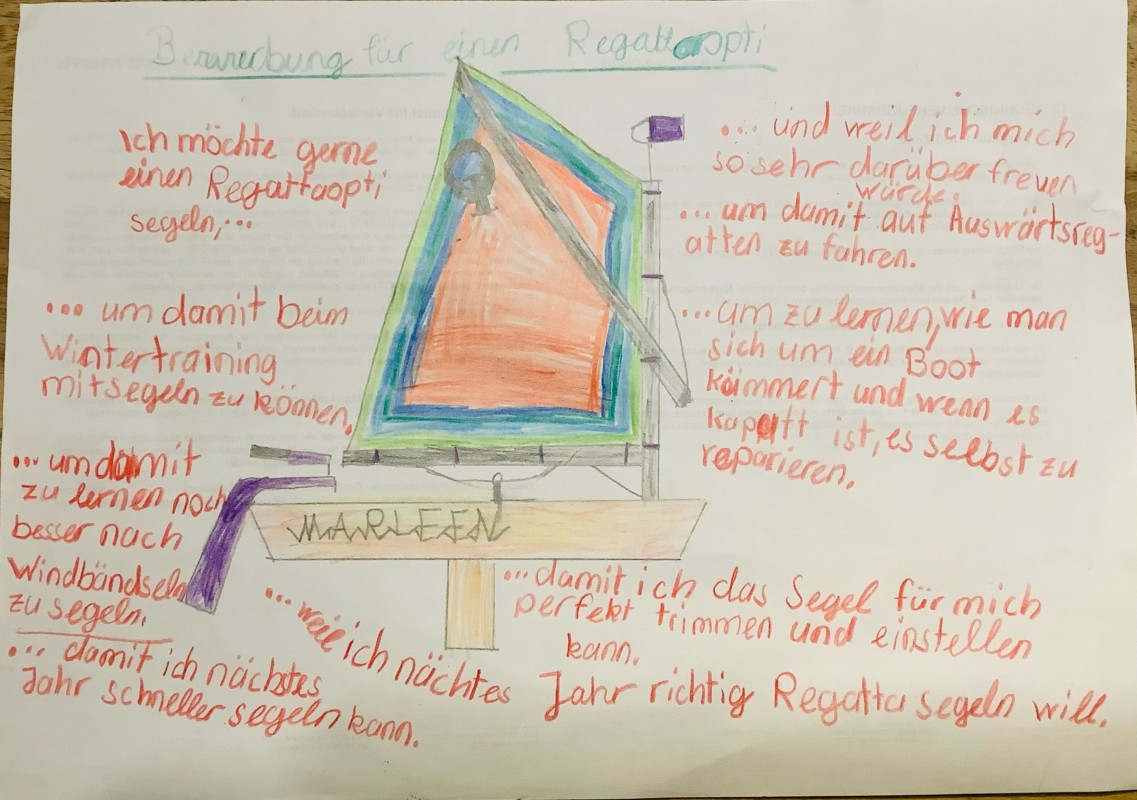 Bewerbung für einen Regattaopti
Ich möchte gerne
einen Regattaopti
segeln,...
... um damit beim
Wintertraining
mitsegeln zu können.
... um damit
zu lernen noch
besser nach
Windbändseln
zu segeln.
... damit ich nächstes
Jahr schneller segeln kann.
... und weil ich mich
so sehr darüber freuen
würde.
... um damit auf Auswärtsreg-
atten zu fahren.
... um zu lernen, wie man
sich um ein Boot
kümmert und wenn es
kaputt ist, es selbst zu
reparieren.
MARLEEN
... damit ich das Segel für mich
perfekt trimmen und einstellen
kann.
... weil ich nächtes Jahr richtig Regatta segeln will.